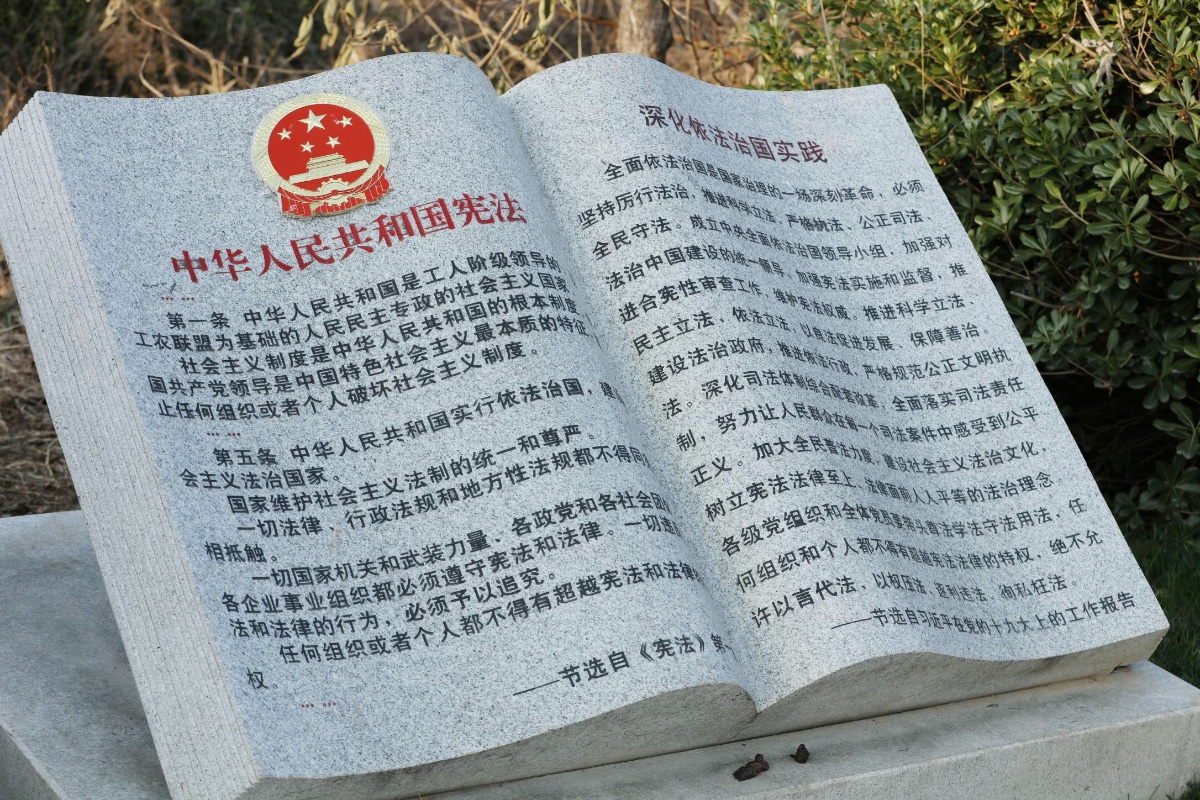 中华人民共和国宪法
… …
第一条 中华人民共和国是工人阶级领导的
工农联盟为基础的人民民主专政的社会主义国家
社会主义制度是中华人民共和国的根本制度
国共产党领导是中国特色社会主义最本质的特征
止任何组织或者个人破坏社会主义制度。
… …
第五条 中华人民共和国实行依法治国，建
会主义法治国家。
国家维护社会主义法制的统一和尊严。
一切法律、行政法规和地方性法规都不得同
相抵触。
一切国家机关和武装力量、各政党和各社会团
各企业事业组织都必须遵守宪法和法律。一切违
法和法律的行为，必须予以追究。
任何组织或者个人都不得有超越宪法和法律
权。
… …
——节选自《宪法》第
深化依法治国实践
全面依法治国是国家治理的一场深刻革命，必须
坚持厉行法治，推进科学立法、严格执法、公正司法、
全民守法。成立中央全面依法治国领导小组，加强对
法治中国建设的统一领导。加强宪法实施和监督，推
进合宪性审查工作，维护宪法权威。推进科学立法、
民主立法、依法立法，以良法促进发展、保障善治。
建设法治政府，推进依法行政，严格规范公正文明执
法。深化司法体制综合配套改革，全面落实司法责任
制，努力让人民群众在每一个司法案件中感受到公平
正义。加大全民普法力度，建设社会主义法治文化，
树立宪法法律至上、法律面前人人平等的法治理念。
各级党组织和全体党员要带头尊法学法守法用法，任
何组织和个人都不得有超越宪法法律的特权，绝不允
许以言代法、以权压法、逐利违法、徇私枉法。
——节选自习近平在党的十九大上的工作报告